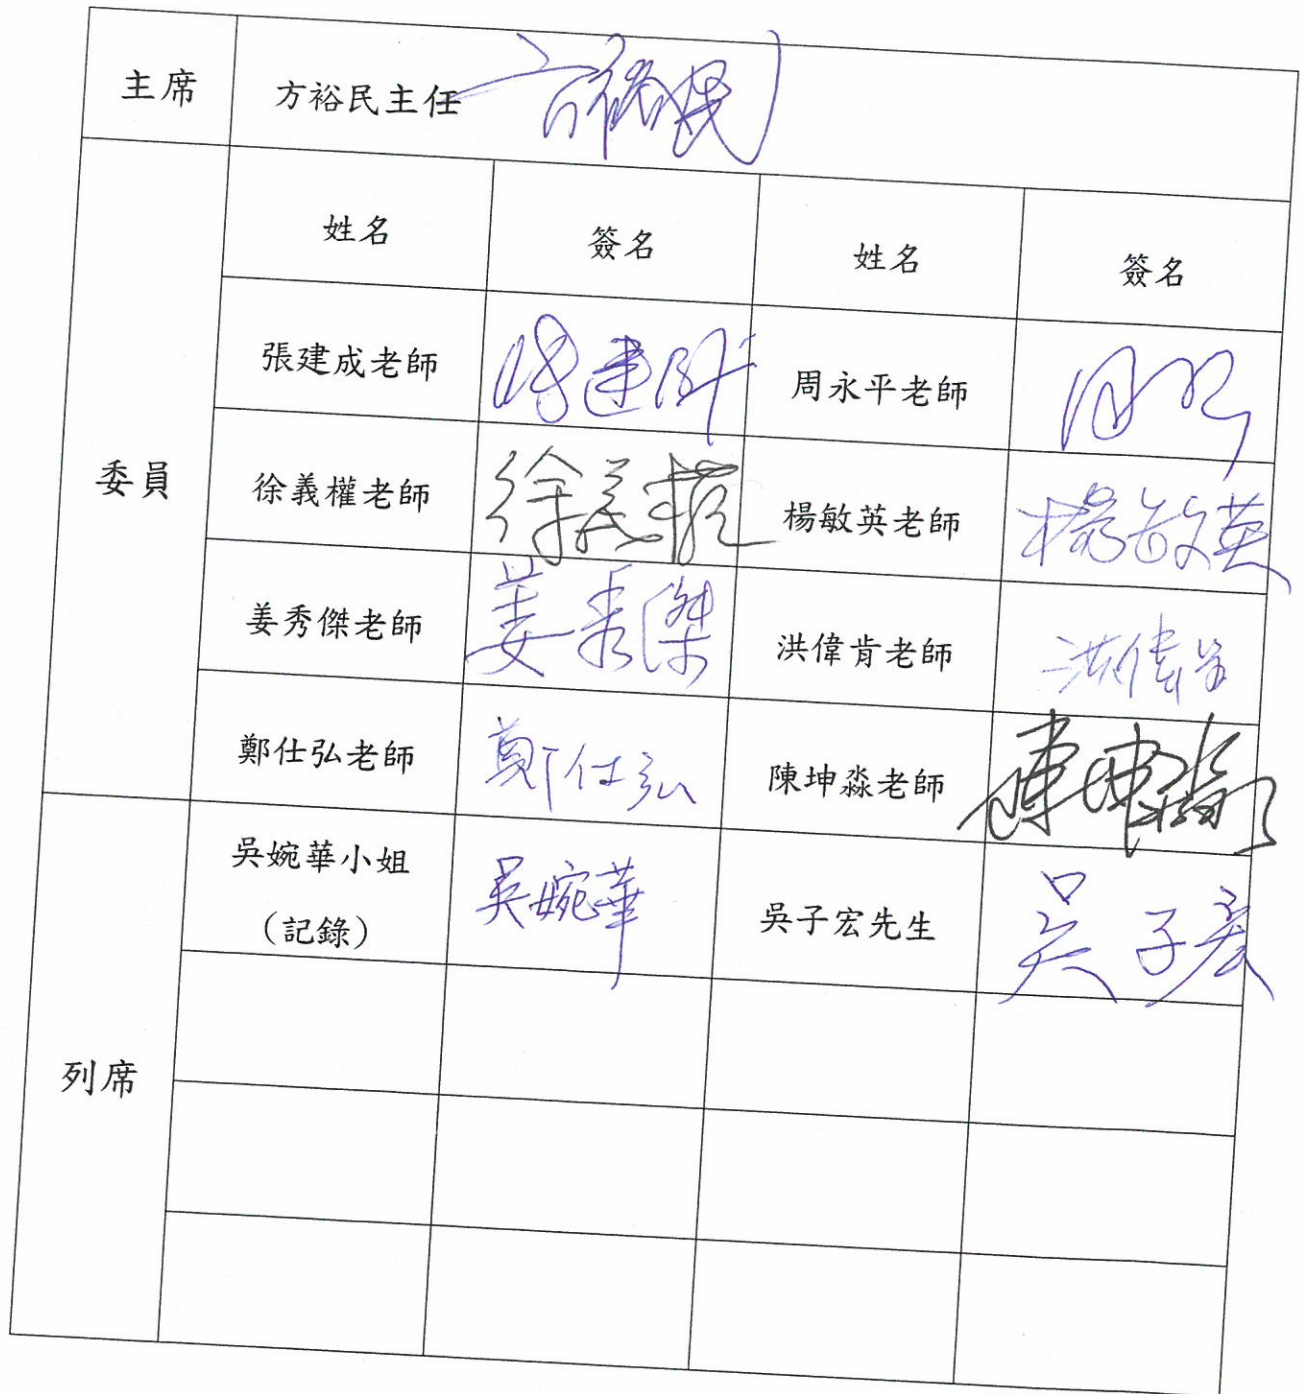 主席
方裕民主任
方裕民
委員
姓名
簽名
姓名
簽名
張建成老師
周永平老師
徐義權老師
徐義權
楊敏英老師
楊敏英
姜秀傑老師
姜秀傑
洪偉肯老師
洪偉肯
鄭仕弘老師
鄭仕弘
陳坤淼老師
陳坤淼
列席
吳婉華小姐
(記錄)
吳婉華
吳子宏先生
吳子宏